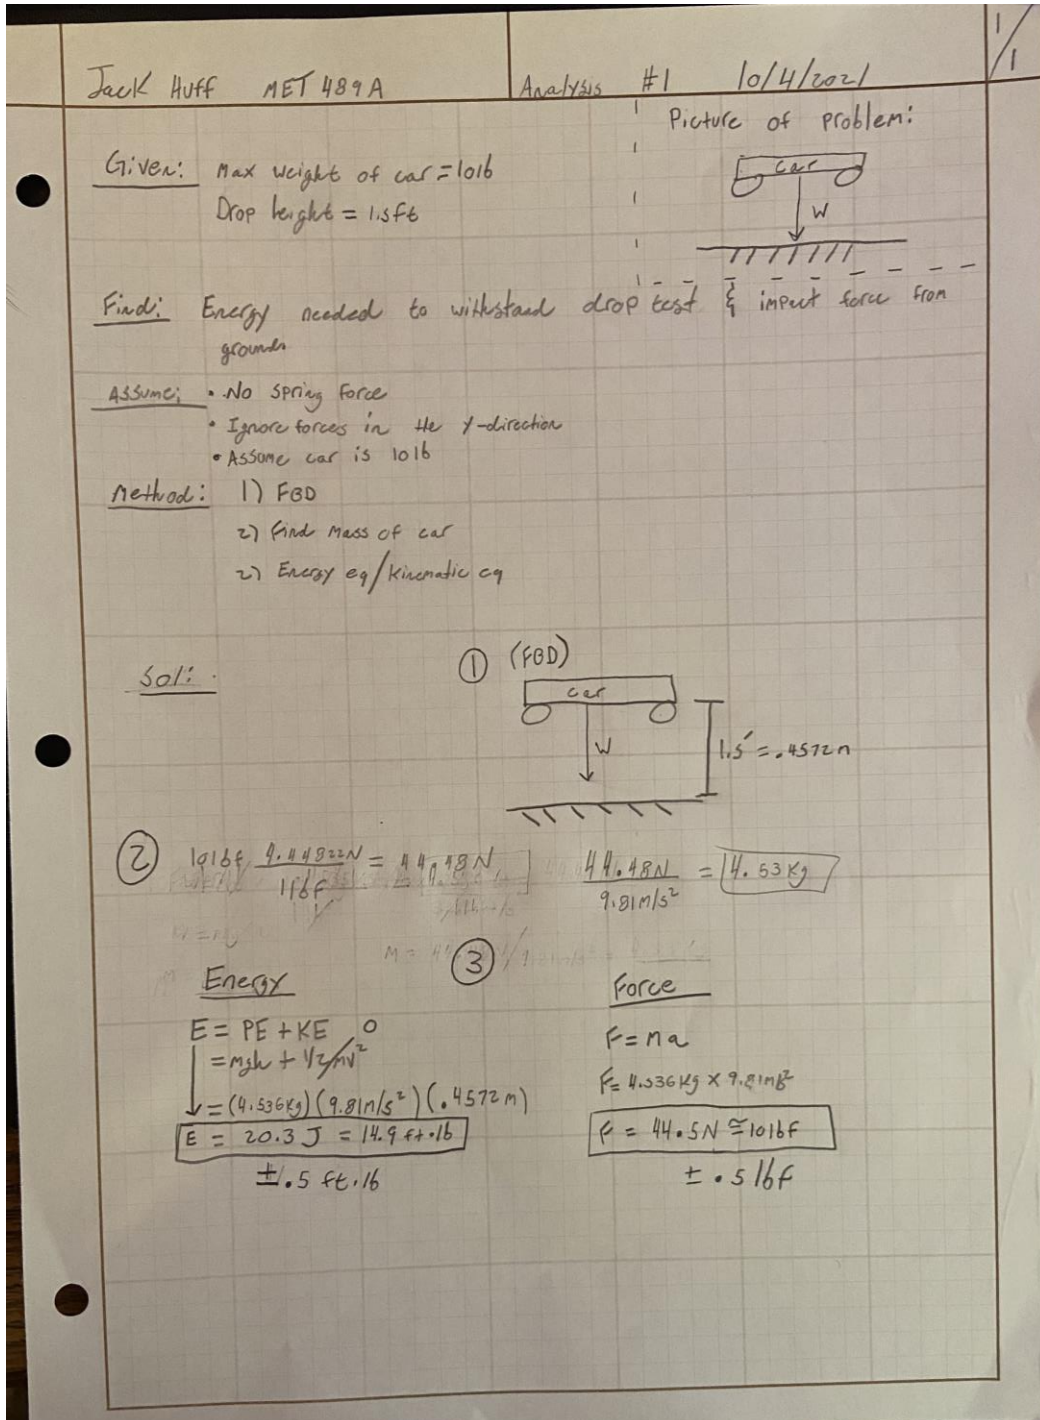 1/1
Jack Huff MET 489A Analysis #1 10/4/2021
Picture of problem:
Given: Max weight of car = 10lb
Drop height = 1.5ft
car
W
Find: Energy needed to withstand drop test & impact force from
ground
Assume: • No spring force
• Ignore forces in the Y-direction
• Assume car is 10lb
Method: 1) FBD
2) Find Mass of car
2) Energy eq/kinematic eq
Sol:
① (FBD)
car
W
1.5' = .4572m
② 10lbf 4.44822N/1lbf = 44.48N 44.48N/9.81m/s² = 4.53Kg
③
Energy Force
E = PE + KE 0
= mgh + 1/2mv²
= (4.536Kg)(9.81m/s²)(.4572m)
E = 20.3 J = 14.9 ft·lb
± .5 ft·lb
F = ma
F = 4.536Kg x 9.81m/s²
F = 44.5N ≅ 10lbf
± .5 lbf